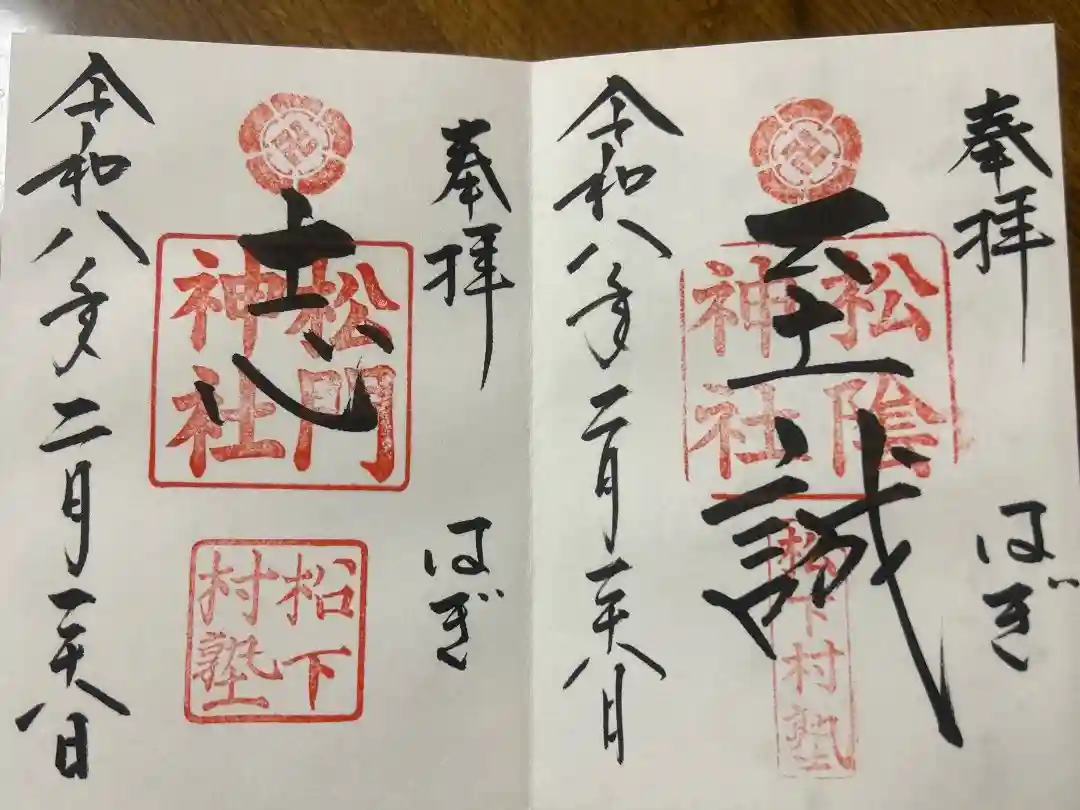 奉拝 はぎ
至誠
松陰
神社
松下村塾
令和八年二月二十八日
奉拝 はぎ
志
松門
神社
松下
村塾
令和八年二月二十八日